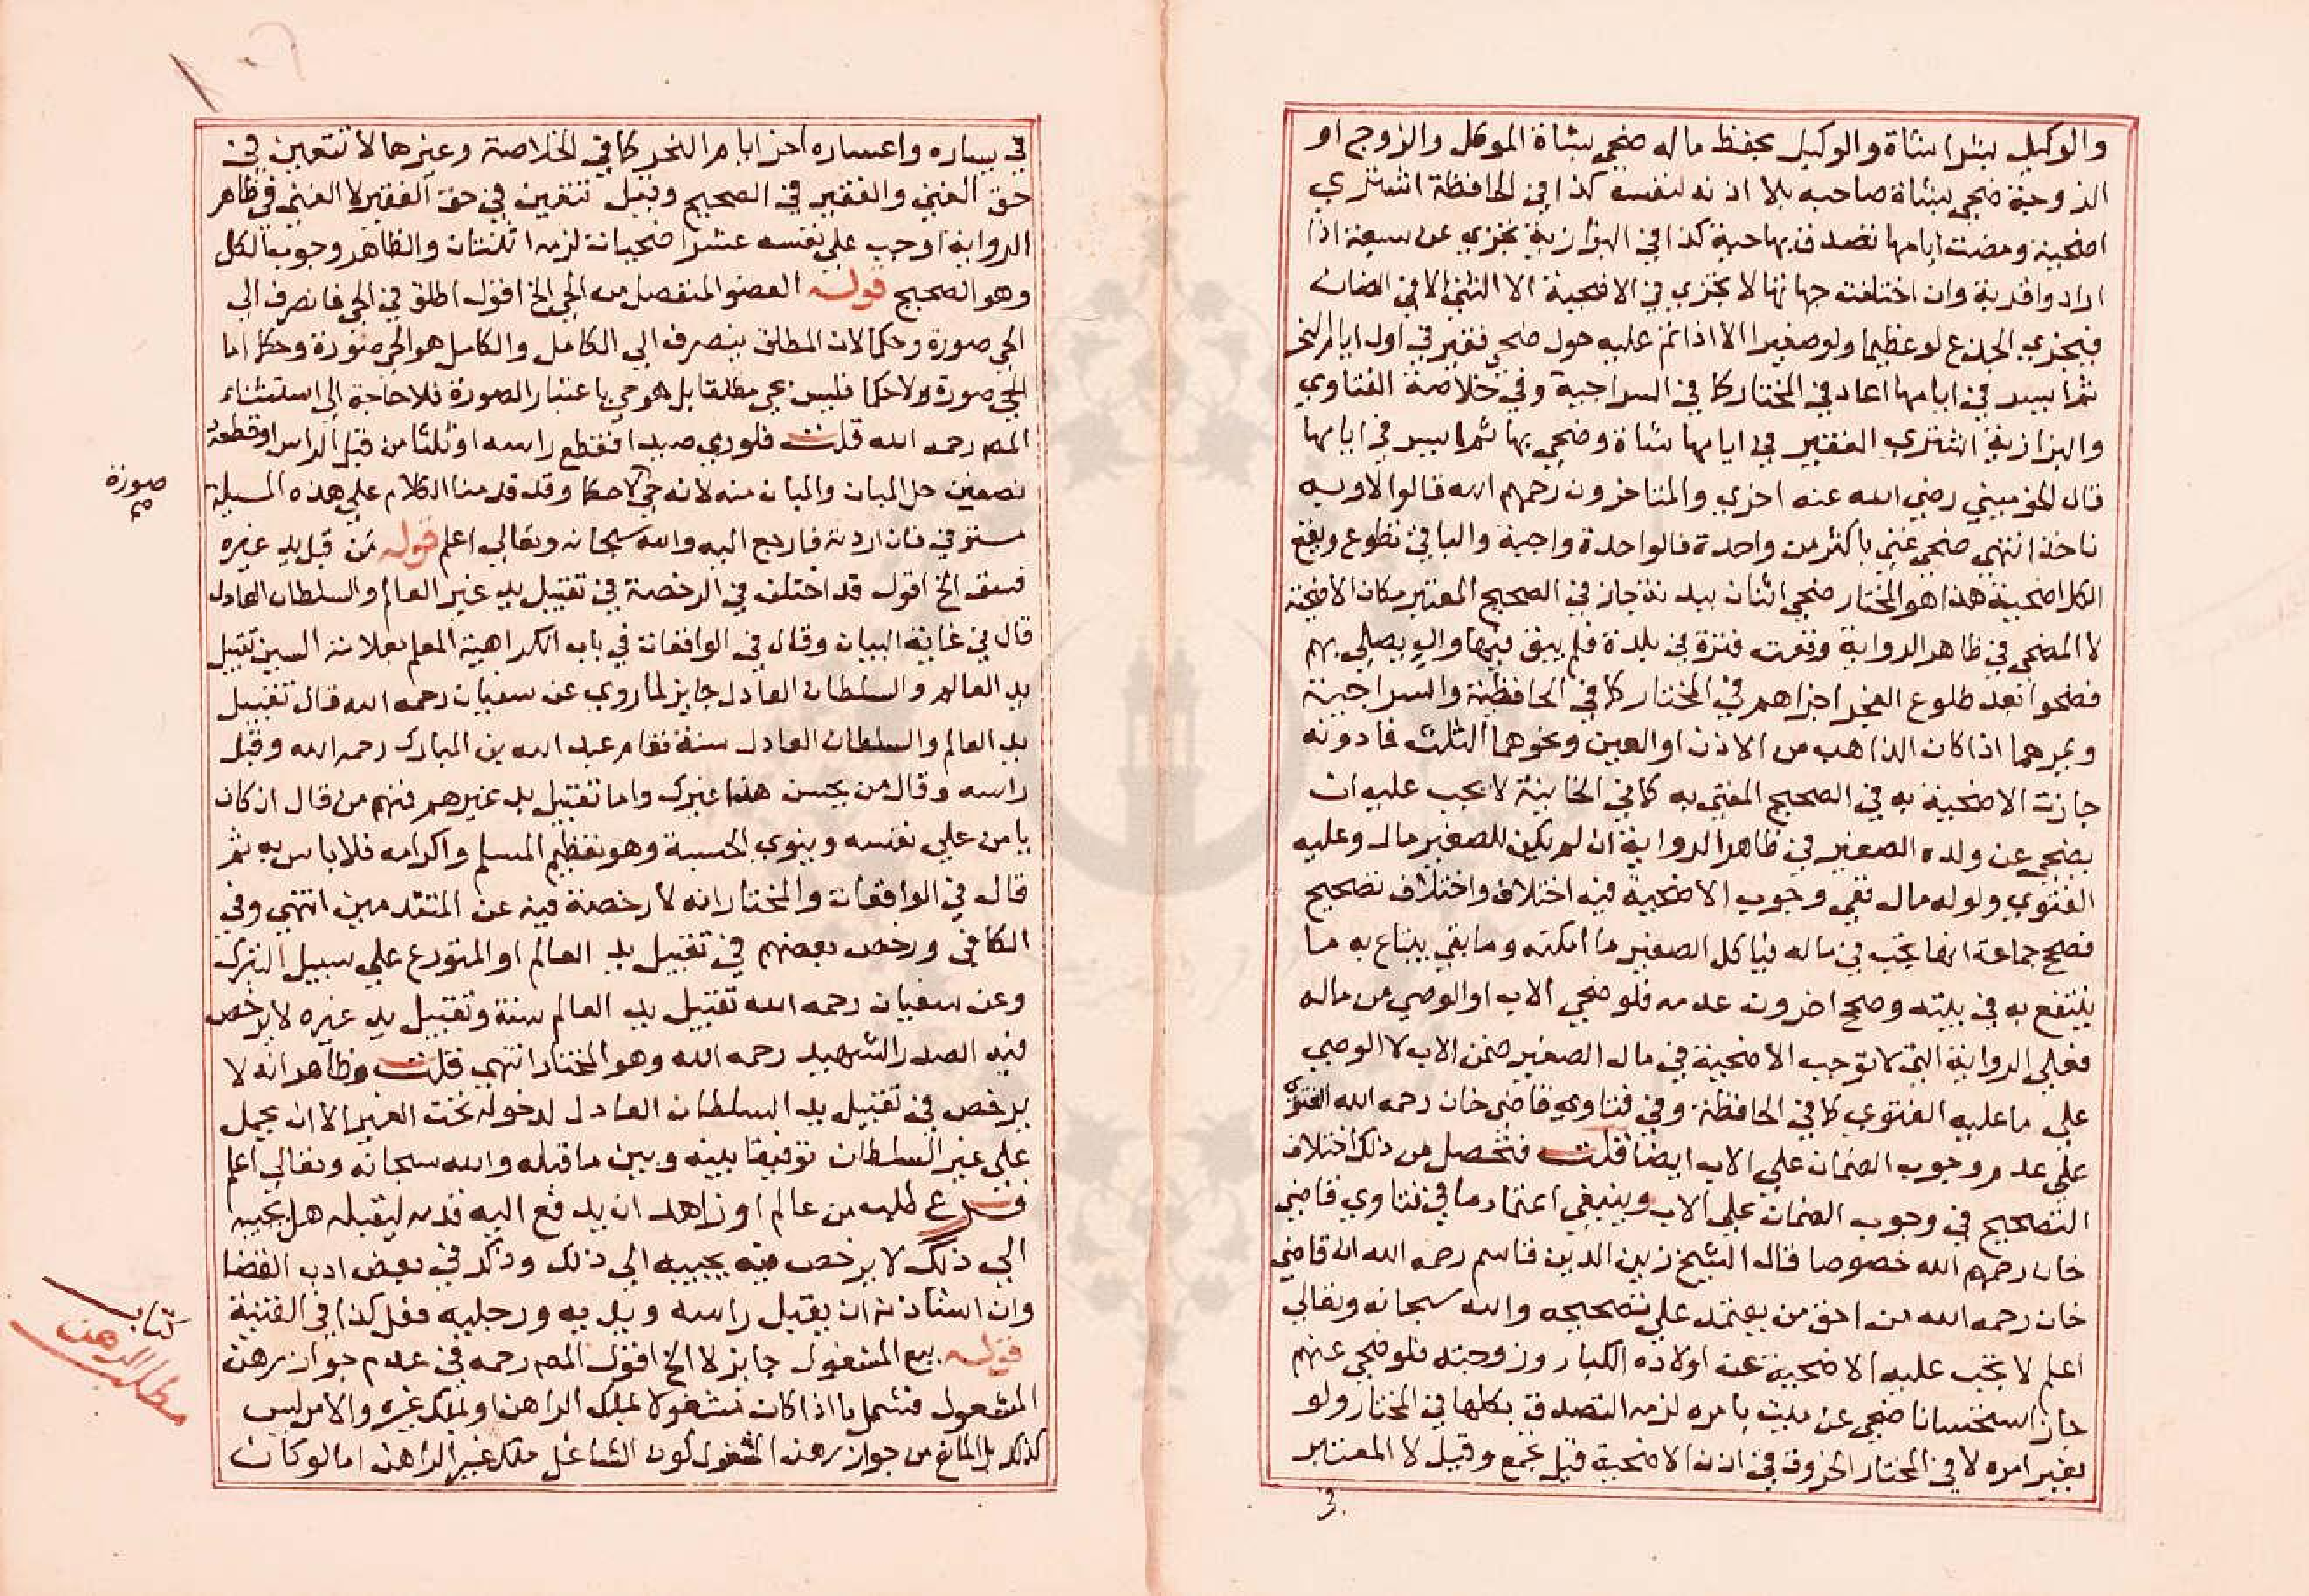 والوكيل بشرا شاة والوكيل بحفظ ماله ضحي بشاة الموكل والزوج او
الزوجة ضحي بشاة صاحبه بلا اذنه لنفسه كذا في الحافظة اشتري
اضحية ومضت ايامها تصدق بها حية كذا في البزازية تجزي عن سبعة اذا
ارادوا قربة وان اختلفت جهاتها لا يجزي في الاضحية الا الثني الا في الضان
فيجزي الجذع لو عظيما ولو صغيرا الا اذا تم عليه حول ضحي فقير في اول ايام النحر
ثم ايسر في ايامها اعاد في المختار كما في السراجية وفي خلاصة الفتاوي
والبزازية اشتري الفقير في ايامها شاة وضحي بها ثم ايسر في ايامها
قال المرميني رضي الله عنه اخري والمتاخرون رحمهم الله قالوا لا وبه
ناخذ انتهي ضحي غني باكثر من واحدة فالواحدة واجبة والباقي تطوع ويقع
الكل اضحية هذا هو المختار ضحي اثنان ببدنة جاز في الصحيح المعتبر مكان الاضحية
لا المضحي في ظاهر الرواية وقعت فترة في بلدة فلم يبق فيها وال يصلي بهم
فضحوا بعد طلوع الفجر اجزاهم في المختار كما في الحافظية والسراجية
وغيرهما اذا كان الذاهب من الاذن او العين ونحوهما الثلث فما دونه
جازت الاضحية به في الصحيح المفتي به كما في الخانية لا يجب عليه ان
يضحي عن ولده الصغير في ظاهر الرواية ان لم يكن للصغير مال وعليه
الفتوي ولو له مال نفي وجوب الاضحية فيه اختلاف واختلاف تصحيح
فصحح جماعة انها تجب في ماله فياكل الصغير ما امكنه وما بقي يبتاع به ما
ينتفع به في بيته وصحح اخرون عدمه فلو ضحي الاب او الوصي من ماله
فعلي الرواية التي لا توجب الاضحية في مال الصغير ضمن الاب لا الوصي
علي ما عليه الفتوي كما في الحافظة وفي فتاوي قاضي خان رحمه الله الفتوي
علي عدم وجوب الضمان علي الاب ايضا قلت فتحصل من ذلك اختلاف
التصحيح في وجوب الضمان علي الاب وينبغي اعتماد ما في فتاوي قاضي
خان رحمهم الله خصوصا قال الشيخ زين الدين قاسم رحمه الله ان قاضي
خان رحمه الله من احق من يعتمد علي تصحيحه والله سبحانه وتعالي
اعلم لا تجب عليه الاضحية عن اولاده الكبار وزوجته فلو ضحي عنهم
جاز استحسانا ضحي عن ميت بامره لزمه التصدق بكلها في المختار ولو
بغير امره لا في المختار الخروق في اذن الاضحية قيل تجمع وقيل لا المعتبر
في يساره واعساره اخر ايام النحر كما في الخلاصة وغيرها لا تتعين في
حق الغني والفقير في الصحيح وقيل تتعين في حق الفقير لا الغني في ظاهر
الرواية اوجب علي نفسه عشر اضحيات لزمه اثنتان والظاهر وجوب الكل
وهو الصحيح قوله العضو المنفصل من الحي الخ اقول اطلق في الحي فانصرف الي
الحي صورة وحكما لان المطلق ينصرف الي الكامل والكامل هو الحي صورة وحكما اما
الحي صورة ولا حكما فليس بحي مطلقا بل هو حي باعتبار الصورة فلا حاجة الي استثناء
المصـ رحمه الله قلت فلو رمي صيدا فقطع راسه او ثلثا من قبل الراس او قطعه
نصفين حل المبان والمبان منه لانه حي لا حكما وقد قدمنا الكلام علي هذه المسيلة
صورة
صح
مستوفي فان اردته فارجع اليه والله سبحانه وتعالي اعلم قوله من قبل يد غيره
فسق الخ اقول قد اختلف في الرخصة في تقبيل يد غير العالم والسلطان العادل
قال في غاية البيان وقال في الواقعات في باب الكراهية المعلم بعلامة السين تقبيل
يد العالم والسلطان العادل جايز لما روي عن سفيان رحمه الله قال تقبيل
يد العالم والسلطان العادل سنة فقام عبد الله بن المبارك رحمه الله وقبل
راسه وقال من يحسن هذا غيرك واما تقبيل يد غيرهم فمنهم من قال ان كان
يامن علي نفسه وينوي الحسبة وهو تعظيم المسلم واكرامه فلا باس به ثم
قال في الواقعات والمختار انه لا رخصة فيه عن المتقدمين انتهي وفي
الكافي ورخص بعضهم في تقبيل يد العالم او المتورع علي سبيل التبرك
وعن سفيان رحمه الله تقبيل يد العالم سنة وتقبيل يد غيره لا يرخص
فيه الصدر الشهيد رحمه الله وهو المختار انتهي قلت وظاهر انه لا
يرخص في تقبيل يد السلطان العادل لدخوله تحت الغير الا ان يحمل
علي غير السلطان توفيقا بينه وبين ما قبله والله سبحانه وتعالي اعلم
فرع طلب من عالم او زاهد ان يدفع اليه قدمه ليقبله هل يجيبه
الي ذلك لا يرخص فيه يجيبه الي ذلك وذكر في بعض ادب القضا
وان استاذنه ان يقبل راسه ويديه ورجليه فعل كذا في القنية
قوله بيع المشغول جايز لا الخ اقول المصـ رحمه في عدم جواز رهن
كتاب الرهن
مطلب
المشغول فتشمل ما اذا كان مشغولا بملك الراهن او بملك غيره والامر ليس
كذلك بل المانع من جواز رهن المشغول كون الشاغل ملك غير الراهن اما لو كان